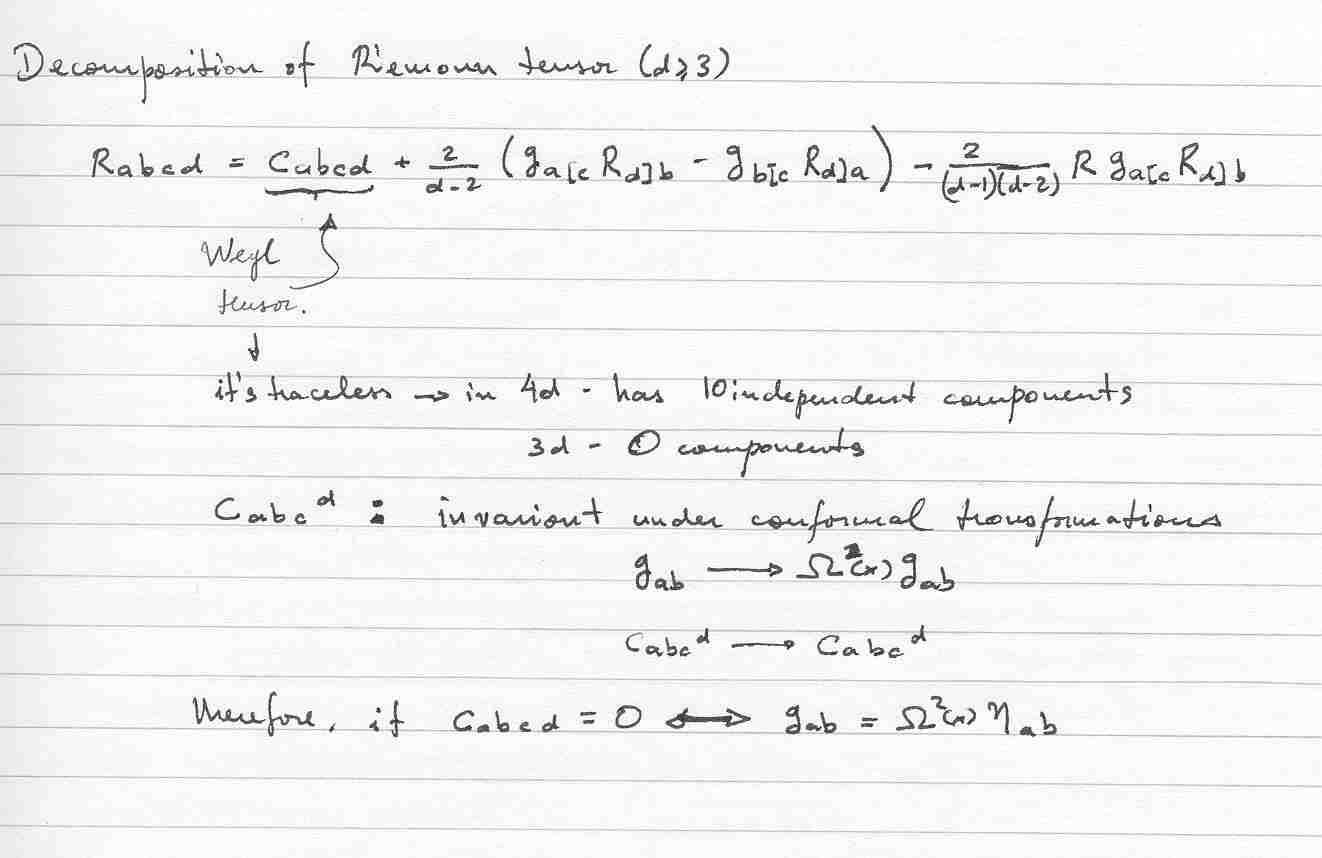 Decomposition of Riemann tensor (d⩾3)
Rabcd = Cabcd + 2/(d-2) (ga[c Rd]b - gb[c Rd]a) - 2/((d-1)(d-2)) R ga[c Rd]b
Weyl
tensor.
↓
it's traceless → in 4d - has 10 independent components
3d - 0 components
Cabc^d : invariant under conformal transformations
gab ⟶ Ω²(x) gab
Cabc^d ⟶ Cabc^d
Therefore, if Cabcd = 0 ⟷ gab = Ω²(x) ηab